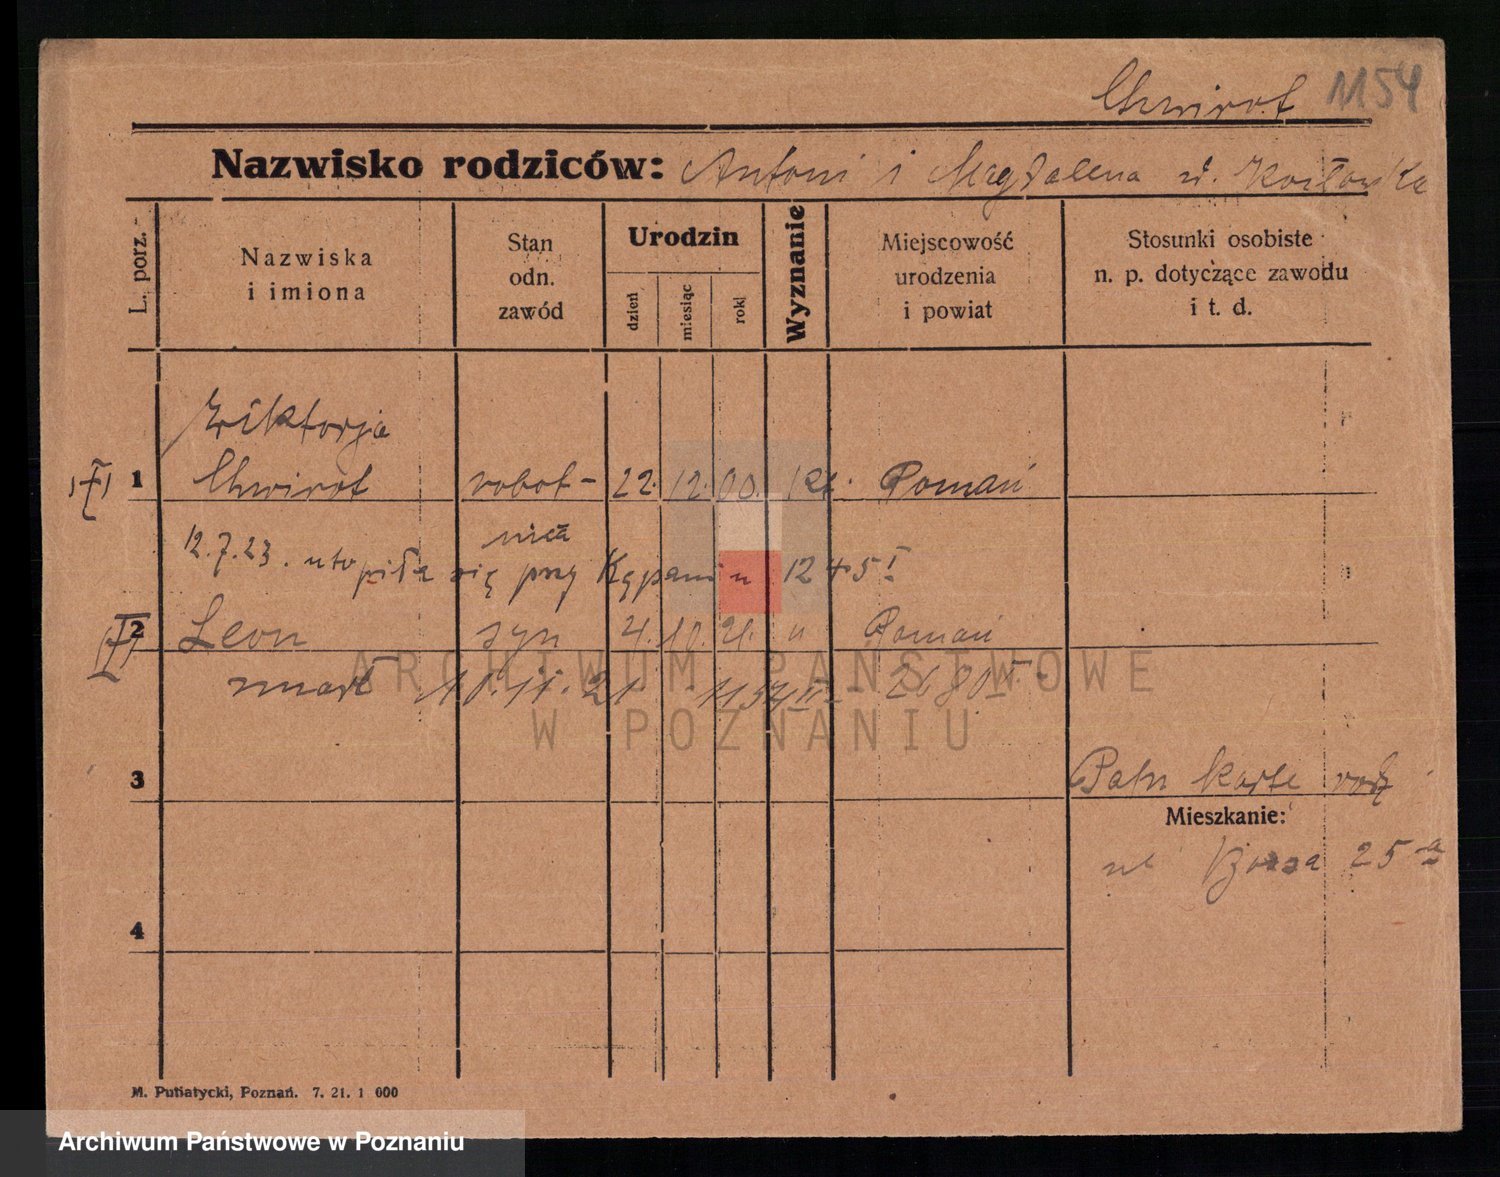 Chwirot 1154
Nazwisko rodziców: Antoni i Magdalena
L. porz.
Nazwiska
i imiona
Stan
odn.
zawód
Urodzin
dzień
miesiąc
rok
Wyznanie
Miejscowość
urodzenia
i powiat
Stosunki osobiste
n. p. dotyczące zawodu
i t. d.
Wiktorja
1 Chwirot robot- 22. 12. 00. kt. Poznań
nica
12.7.23. utopiła się przy Kąpaniu 1245 I
2 Leon syn 4. 10. 21. " Poznań
zmarł 10.11.21.
3
Patrz kartę rodz
Mieszkanie:
ul 25 a
4
M. Putiatycki, Poznań. 7. 21. 1 000
ARCHIWUM PAŃSTWOWE
W POZNANIU
Archiwum Państwowe w Poznaniu